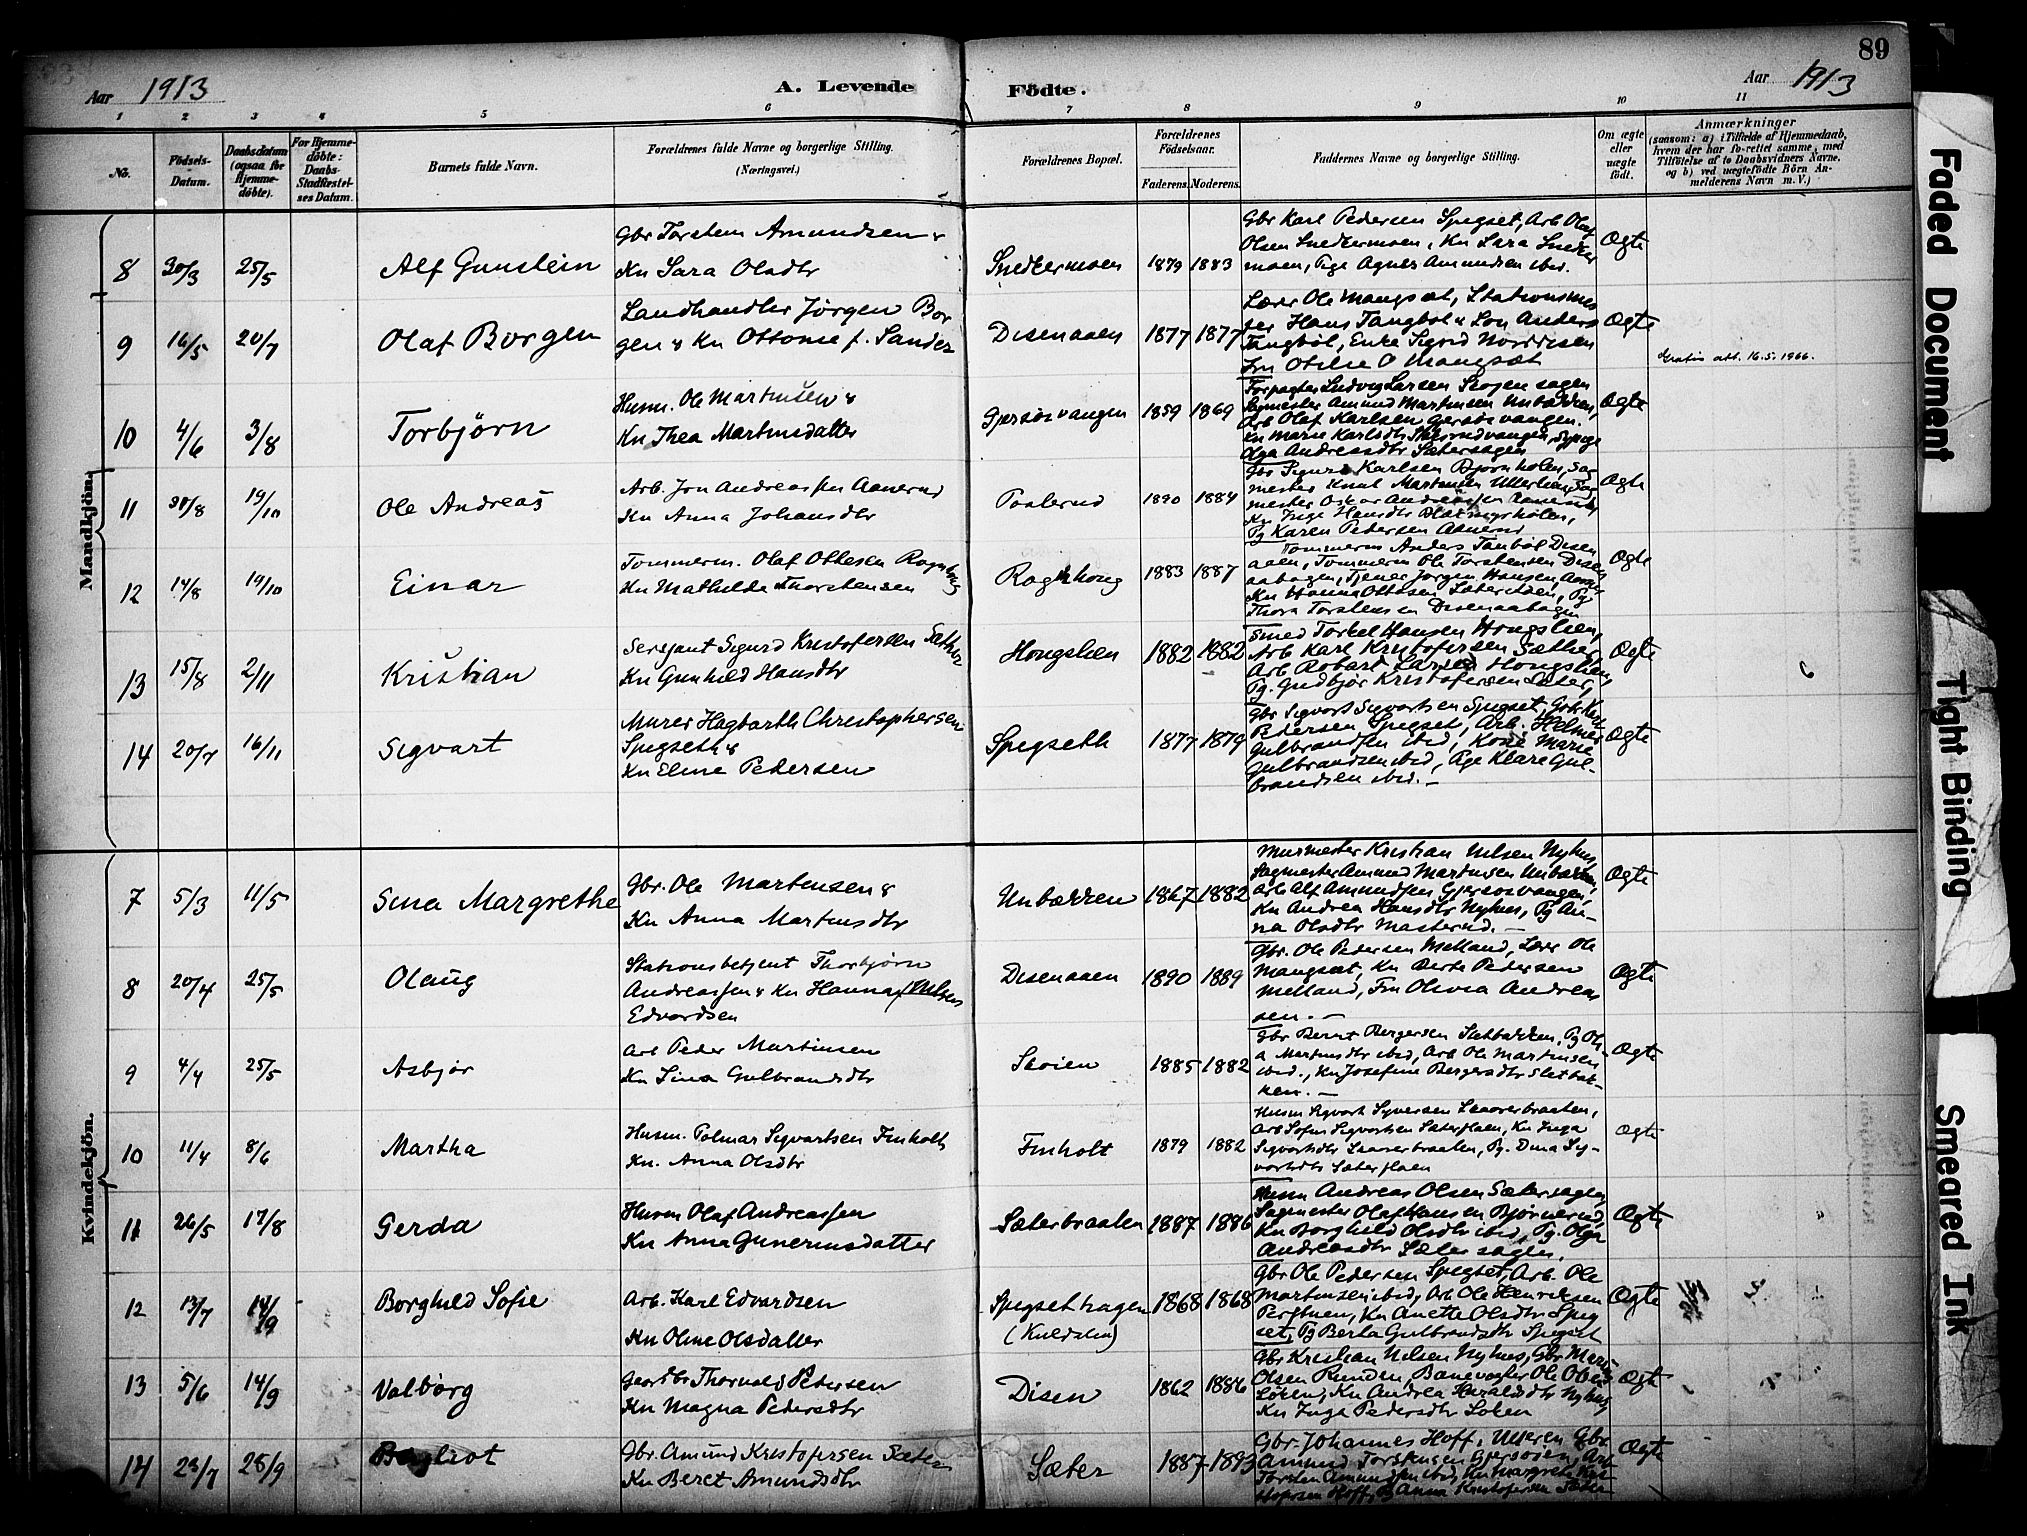 89
Aar 1913
A. Levende Födte.
Aar 1913
1 2 3 4 5 6 7 8 9 10 11
No.
Födsels-Datum.
Daabsdatum (ogsaa för Hjemmedöbte).
For Hjemmedöbte: Daabs-Stadfæstelses Datum.
Barnets fulde Navn.
Forældrenes fulde Navne og borgerlige Stilling.
(Næringsvei.)
Forældrenes Bopæl.
Forældrenes Fødselsaar.
Faderens. Moderens.
Faddernes Navne og borgerlige Stilling.
Om ægte eller uægte født.
Anmærkninger
(saasom: a) i Tilfælde af Hjemmedaab, hvem der har fo-rettet samme, med Tilföielse af to Daabsvidners Navne, og b) ved uægtefödte Börn Anmelderens Navn m. V.)
Mandkjön.
8 30/3 25/5 Alf Gunstein
Gbr Torstein Amundsen &
Kn Sara Olsdtr
Snekkermoen 1879 1883
Gbr Karl Pedersen Spegset, Arb Olaf
Olsen Snekkermoen, Kn Sara Snekker
moen, Pige Agnes Amundsen ibid.
Ægte
9 16/5 20/7 Olaf Borgen
Landhandler Jørgen Bor
gen & Kn Ottomine f. Sander
Disenaaen 1877 1877
Lærer Ole Mangset, Stationsmes
ter Hans Tangbøl & Son Anders
Tangbøl, Enke Sigrid Nordisen
Fru Otilie O Mangset
Ægte
Gratis att. 16.5.1966.
10 4/6 3/8 Torbjørn
Husm. Ole Martinsen &
Kn Thea Martinsdatter
Gjersøsvangen 1859 1869
Forpagter Ludvig Larsen Skogen sagen
Sagmester Amund Martinsen Unbakken,
Arb Olaf Karlsen Gersøsvangen.
Kn Marie Karlsdtr
Olga Andreasdtr Sætersagen
Ægte
11 30/8 19/10 Ole Andreas
Arb. Jon Andreassen Aanerud
Kn Anna Johansdtr
Poslerud 1890 1884
Gbr Sigurd Karlsen Bjørnholen, Sag
mester Knut Martinsen
mester Oskar Andreassen Aanerud,
Kn Inga Hansdtr
Pg Karen Pedersen Aanerud
Ægte
12 14/8 19/10 Einar
Tømmerm. Olaf Ottesen Ragnhaug
Kn Mathilde Thorstensen
Ragnhaug 1883 1887
Tømmerm Anders Tanbøl Disen
aaen, Tømmerm Ole Torstensen Disen
aahagen, Tjener Jørgen Hansen
Kn Hanna Ottosen
Thora Torstensen Disenaahagen
Ægte
13 15/8 2/11 Kristian
Sersjant Sigurd Kristofersen Sæther
Kn Gunhild Hansdtr
Hongslien 1882 1882
Smed Torkel Hansen Hongslien,
Arb Karl Kristofersen Sæther
Arb Robart Larsen Hongslien
Pg. Gudbjør Kristofersen Sæter,
Ægte
14 20/7 16/11 Sigvart
Murer Hagbarth Christophersen
Spegseth &
Kn Eline Pedersen
Spegseth 1877 1879
Gbr Sigvart Sigvartsen Spegset, Gbr Karl
Pedersen Spegset, Arb. Helmer
Gulbrandsen ibid, Kone Marie
Gulbrandsen ibid, Pige Klara Gul-
brandsen ibid. –
Ægte
Kvindekjön.
7 5/3 11/5 Sina Margrethe
Gbr. Ole Martinsen &
Kn Anna Martinsdtr
Unbakken 1867 1882
Murmester Kristian Nilsen Nyhus,
Sagmester Amund Martinsen Unbakken,
Arb Alf Amundsen Gjersøsvangen,
Kn Andrea Hansdtr Nyhus, Pg An-
na Olsdtr Masterud. –
Ægte
8 20/4 25/5 Olaug
Stationsbetjent Thorbjørn
Andreassen & Kn Hanna f. Nilsen
Edvardsen
Disenaaen 1890 1889
Gbr. Ole Pedersen Melland, Lærer Ole
Mangset, Kn Berte Pedersen
Melland, Frk Olivia Andreas
sen. –
Ægte
9 4/4 25/5 Asbjør
Arb Peder Martinsen
Kn Lina Gulbrandsdtr
Skoien 1885 1882
Gbr Bernt Bergersen Sletbakken, Pg Oli-
a Martinsdtr ibid, Arb Ole Martinsen
ibid., Kn Josefine Bergersdtr Sletbak-
ken. –
Ægte
10 11/4 8/6 Martha
Husm. Polmar Sigvartsen Finholt
Kn. Anna Olsdtr
Finholt 1879 1882
Husm Sigvart Syversen Laaverbraaten,
Arb Sofus Sigvartsen Sæterflaen, Kn Inga
Sigvartsdtr Laaverbraaten, Pg. Dina Sig-
vartsdtr Sæterflaen
Ægte
11 26/5 17/8 Gerda
Husm Olaf Andreassen
Kn Anna Gunerinsdatter
Sæterbraaten 1887 1886
Husm Andreas Olsen Sætersagen,
Sagmester Olaf Hansen Bjørnerud,
Kn Borghild Olsdtr ibid, Pg. Olga
Andreasdtr Sætersagen.
Ægte
12 13/7 14/9 Borghild Sofie
Arb. Karl Edvardsen
Kn Oline Olsdatter
Spegsethagen 1868 1868
Gbr Ole Pedersen Spegset, Arb Ole
Martinsen ibid, Arb Ole Henriksen
Kn Anette Olsdtr Speg
set, Pg Berta Gulbrandsdtr Spegset
Ægte
13 5/6 14/9 Valborg
Gaardbr Thorvald Pedersen
Kn Magna Pedersdtr
Disen 1862 1886
Gbr Kristian Nilsen Nyhus, Gbr Mari-
Olsen Runden, Banevogter Ole Olsen
Løken, Kn Andrea Haraldsdtr Nyhus,
Kn Inga Pedersdtr Løken
Ægte
14 23/7 28/9 Bergliot
Gbr. Amund Kristofersen Sæter
Kn Beret Amundsdtr
Sæter 1887 1893
Gbr. Johannes Hoff, Ulleren Gbr.
Amund Torstensen Gjersøien, Arb
Torsten Amundsen ibid, Kn Margrete Kris
tofersen Hoff, Pg Anna Kristofersen Sæter
Ægte
Faded Document
Tight Binding
Smeared Ink